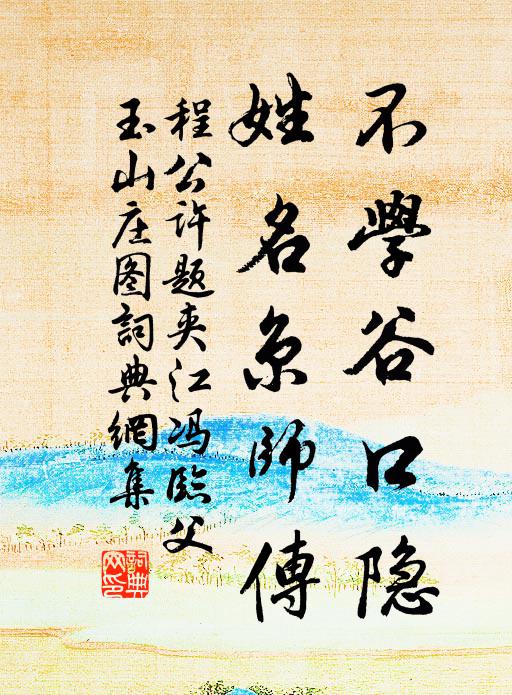 不學谷口隐
姓名京師傳
程公许题夹江冯臨父
玉山庄图詞典網集
詞典网印